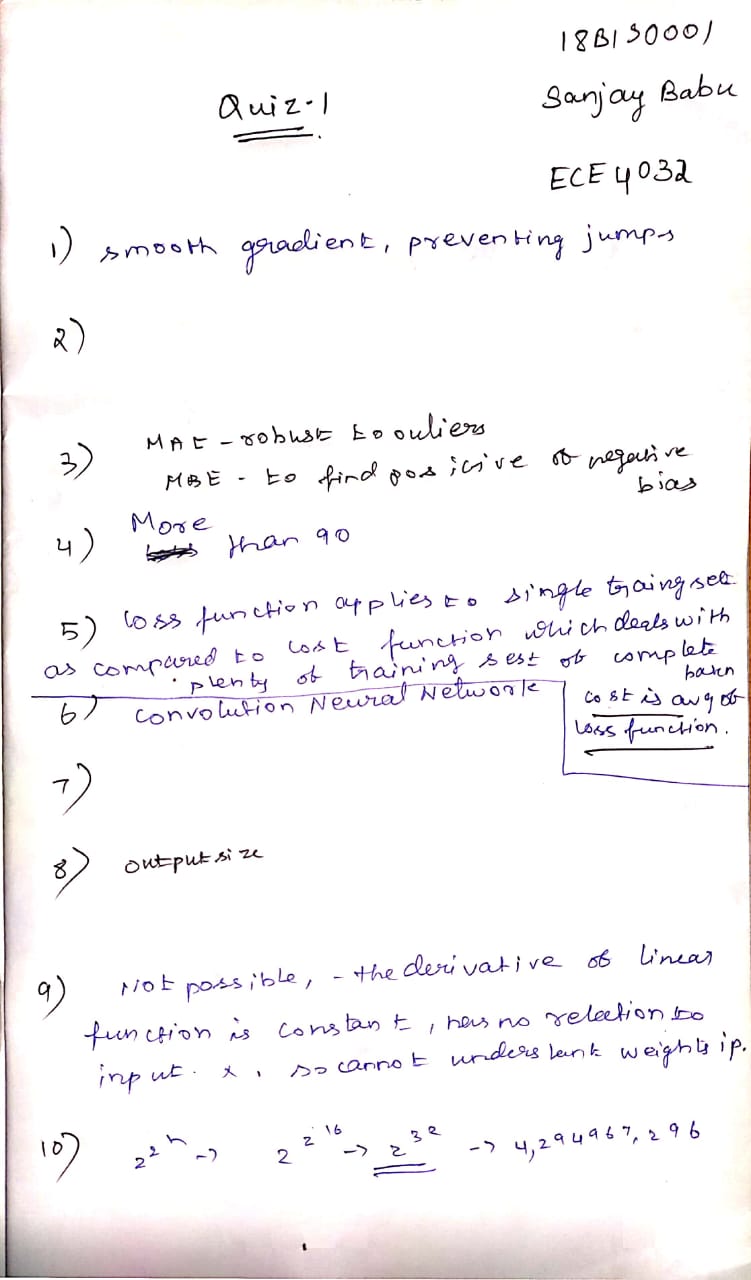 18BIS0001
Quiz-1
Sanjay Babu
ECE4032
1) smooth gradient, preventing jumps
2)
3) MAE - robust to ouliers
MBE - to find positive or negative
bias
4) More
than 90
5) loss function applies to single traing set
as compared to cost function which deals with
plenty of training sest of complete
batch
6) Convolution Neural Network
cost is avg of
loss function.
7)
8) output size
9) Not possible, - the derivative of linear
function is constant, has no relection to
input x, so cannot weights ip.
10) 2^2^n -> 2^2^16 -> 2^32 -> 4,294967,296